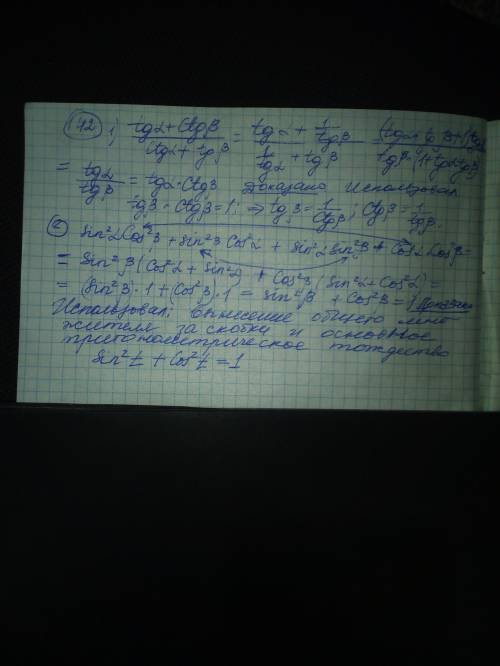 142 1) (tgα + ctgβ)/(ctgα + tgβ) = (tgα + 1/tgβ)/(1/tgα + tgβ) = (tgα tgβ + 1)tgα/tgβ(1 + tgα tgβ)
= tgα/tgβ = tgα · ctgβ Доказано Использовал
tgβ · Ctgβ = 1; ⇒ tgβ = 1/Ctgβ; Ctgβ = 1/tgβ.
2) Sin²α Cos²β + Sin²β Cos²α + Sin²α Sin²β + Cos²α Cos²β =
= Sin²β (Cos²α + Sin²α) + Cos²β (Sin²α + Cos²α) =
= (Sin²β) · 1 + (Cos²β) · 1 = Sin²β + Cos²β = 1 Доказано
Использовал: вынесение общего мно
жителя за скобки и основное
тригонометрическое тождество
Sin²t + Cos²t = 1